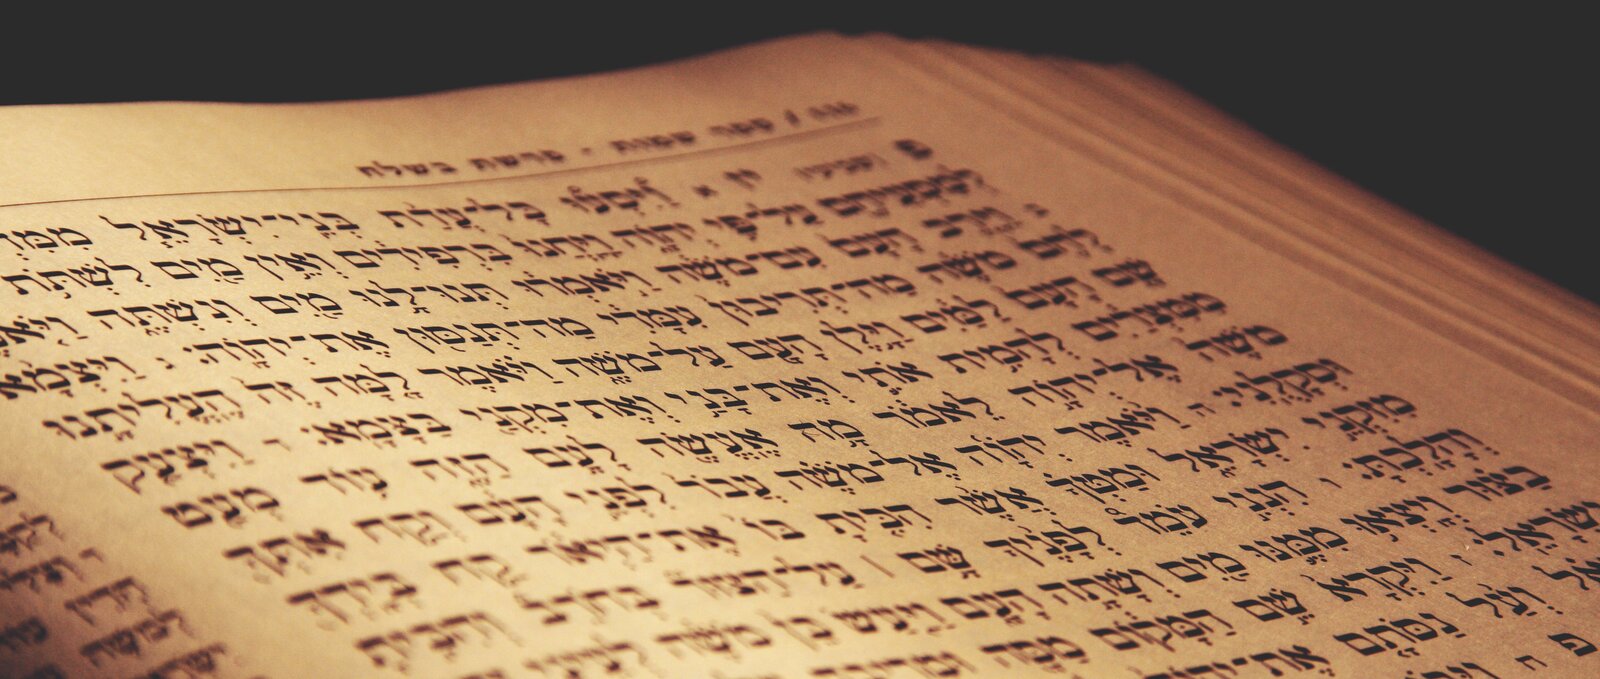 ספר שמות - פרשת בשלח
יז א וַיִּסְעוּ כָּל־עֲדַת בְּנֵי־יִשְׂרָאֵל
לְמַסְעֵיהֶם עַל־פִּי יְהֹוָה וַיַּחֲנוּ בִּרְפִידִים וְאֵין מַיִם לִשְׁתֹּת
ב וַיָּרֶב הָעָם עִם־מֹשֶׁה וַיֹּאמְרוּ תְּנוּ־לָנוּ מַיִם וְנִשְׁתֶּה
לָהֶם מֹשֶׁה מַה־תְּרִיבוּן עִמָּדִי מַה־תְּנַסּוּן אֶת־יְהֹוָה׃ ג וַיִּצְמָא
שָׁם הָעָם לַמַּיִם וַיָּלֶן הָעָם עַל־מֹשֶׁה וַיֹּאמֶר לָמָּה זֶּה הֶעֱלִיתָנוּ
מִמִּצְרַיִם לְהָמִית אֹתִי וְאֶת־בָּנַי וְאֶת־מִקְנַי בַּצָּמָא׃ ד וַיִּצְעַק
מֹשֶׁה אֶל־יְהֹוָה לֵאמֹר מָה אֶעֱשֶׂה לָעָם הַזֶּה עוֹד מְעַט
וּסְקָלֻנִי׃ ה וַיֹּאמֶר יְהֹוָה אֶל־מֹשֶׁה עֲבֹר לִפְנֵי הָעָם וְקַח אִתְּךָ
מִזִּקְנֵי יִשְׂרָאֵל וּמַטְּךָ אֲשֶׁר הִכִּיתָ בּוֹ אֶת־הַיְאֹר קַח בְּיָדְךָ
וְהָלָכְתָּ׃ ו הִנְנִי עֹמֵד לְפָנֶיךָ שָּׁם ׀ עַל־הַצּוּר בְּחֹרֵב וְהִכִּיתָ
בַצּוּר וְיָצְאוּ מִמֶּנּוּ מַיִם וְשָׁתָה הָעָם וַיַּעַשׂ כֵּן מֹשֶׁה לְעֵינֵי
יִשְׂרָאֵל׃ ז וַיִּקְרָא שֵׁם הַמָּקוֹם מַסָּה וּמְרִיבָה
וְעַל נַסֹּתָם
פ ח